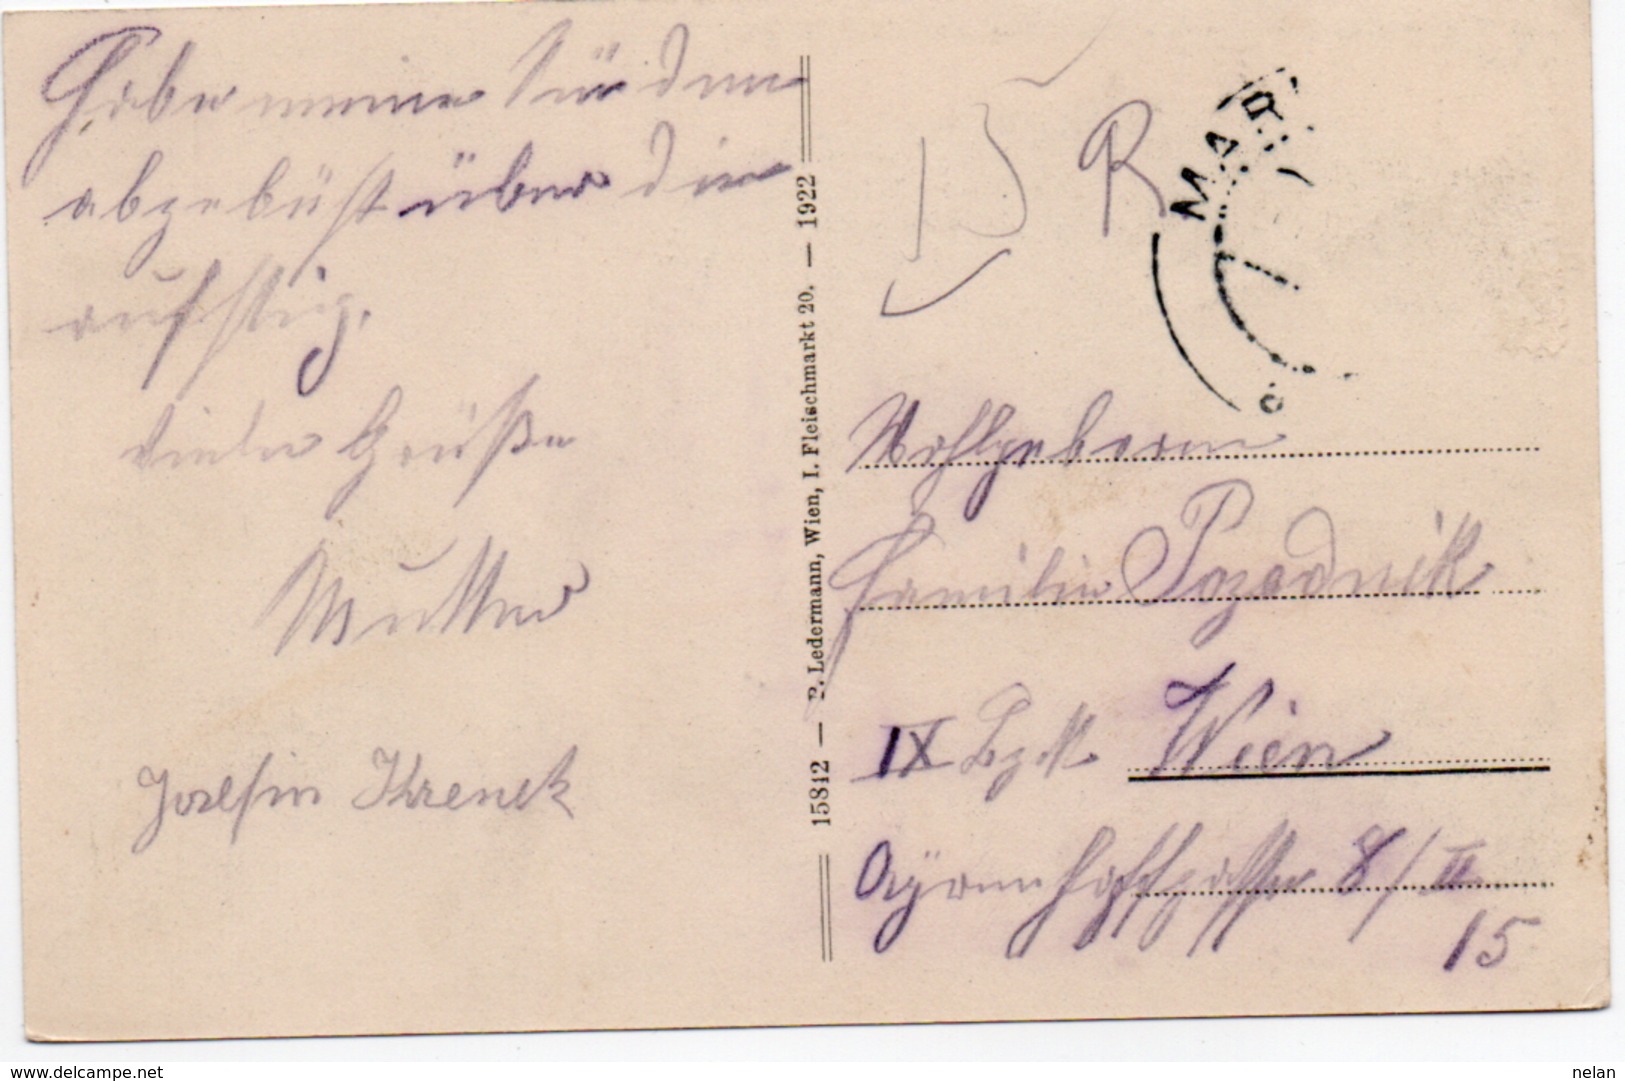 Habe meine Sünden
abgebüst über die
aufstieg.
Viele Grüße
Mutter
Josefin Krenek
15842 — P. Ledermann, Wien, I. Fleischmarkt 20. — 1922
15 R
MAR
Wohlgeboren
Familie Pozadnik
IX Bzk Wien
Ayrenhoffgasse 8/II
15
www.delcampe.net
nelan